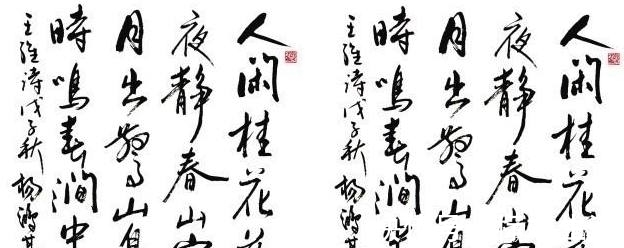 人閑桂花
夜静春山
月出驚山
時鳴春澗中
王維詩戊子秋楊鴻
人閑桂花
夜静春山
月出驚山
時鳴春澗
王維詩戊子秋楊鴻